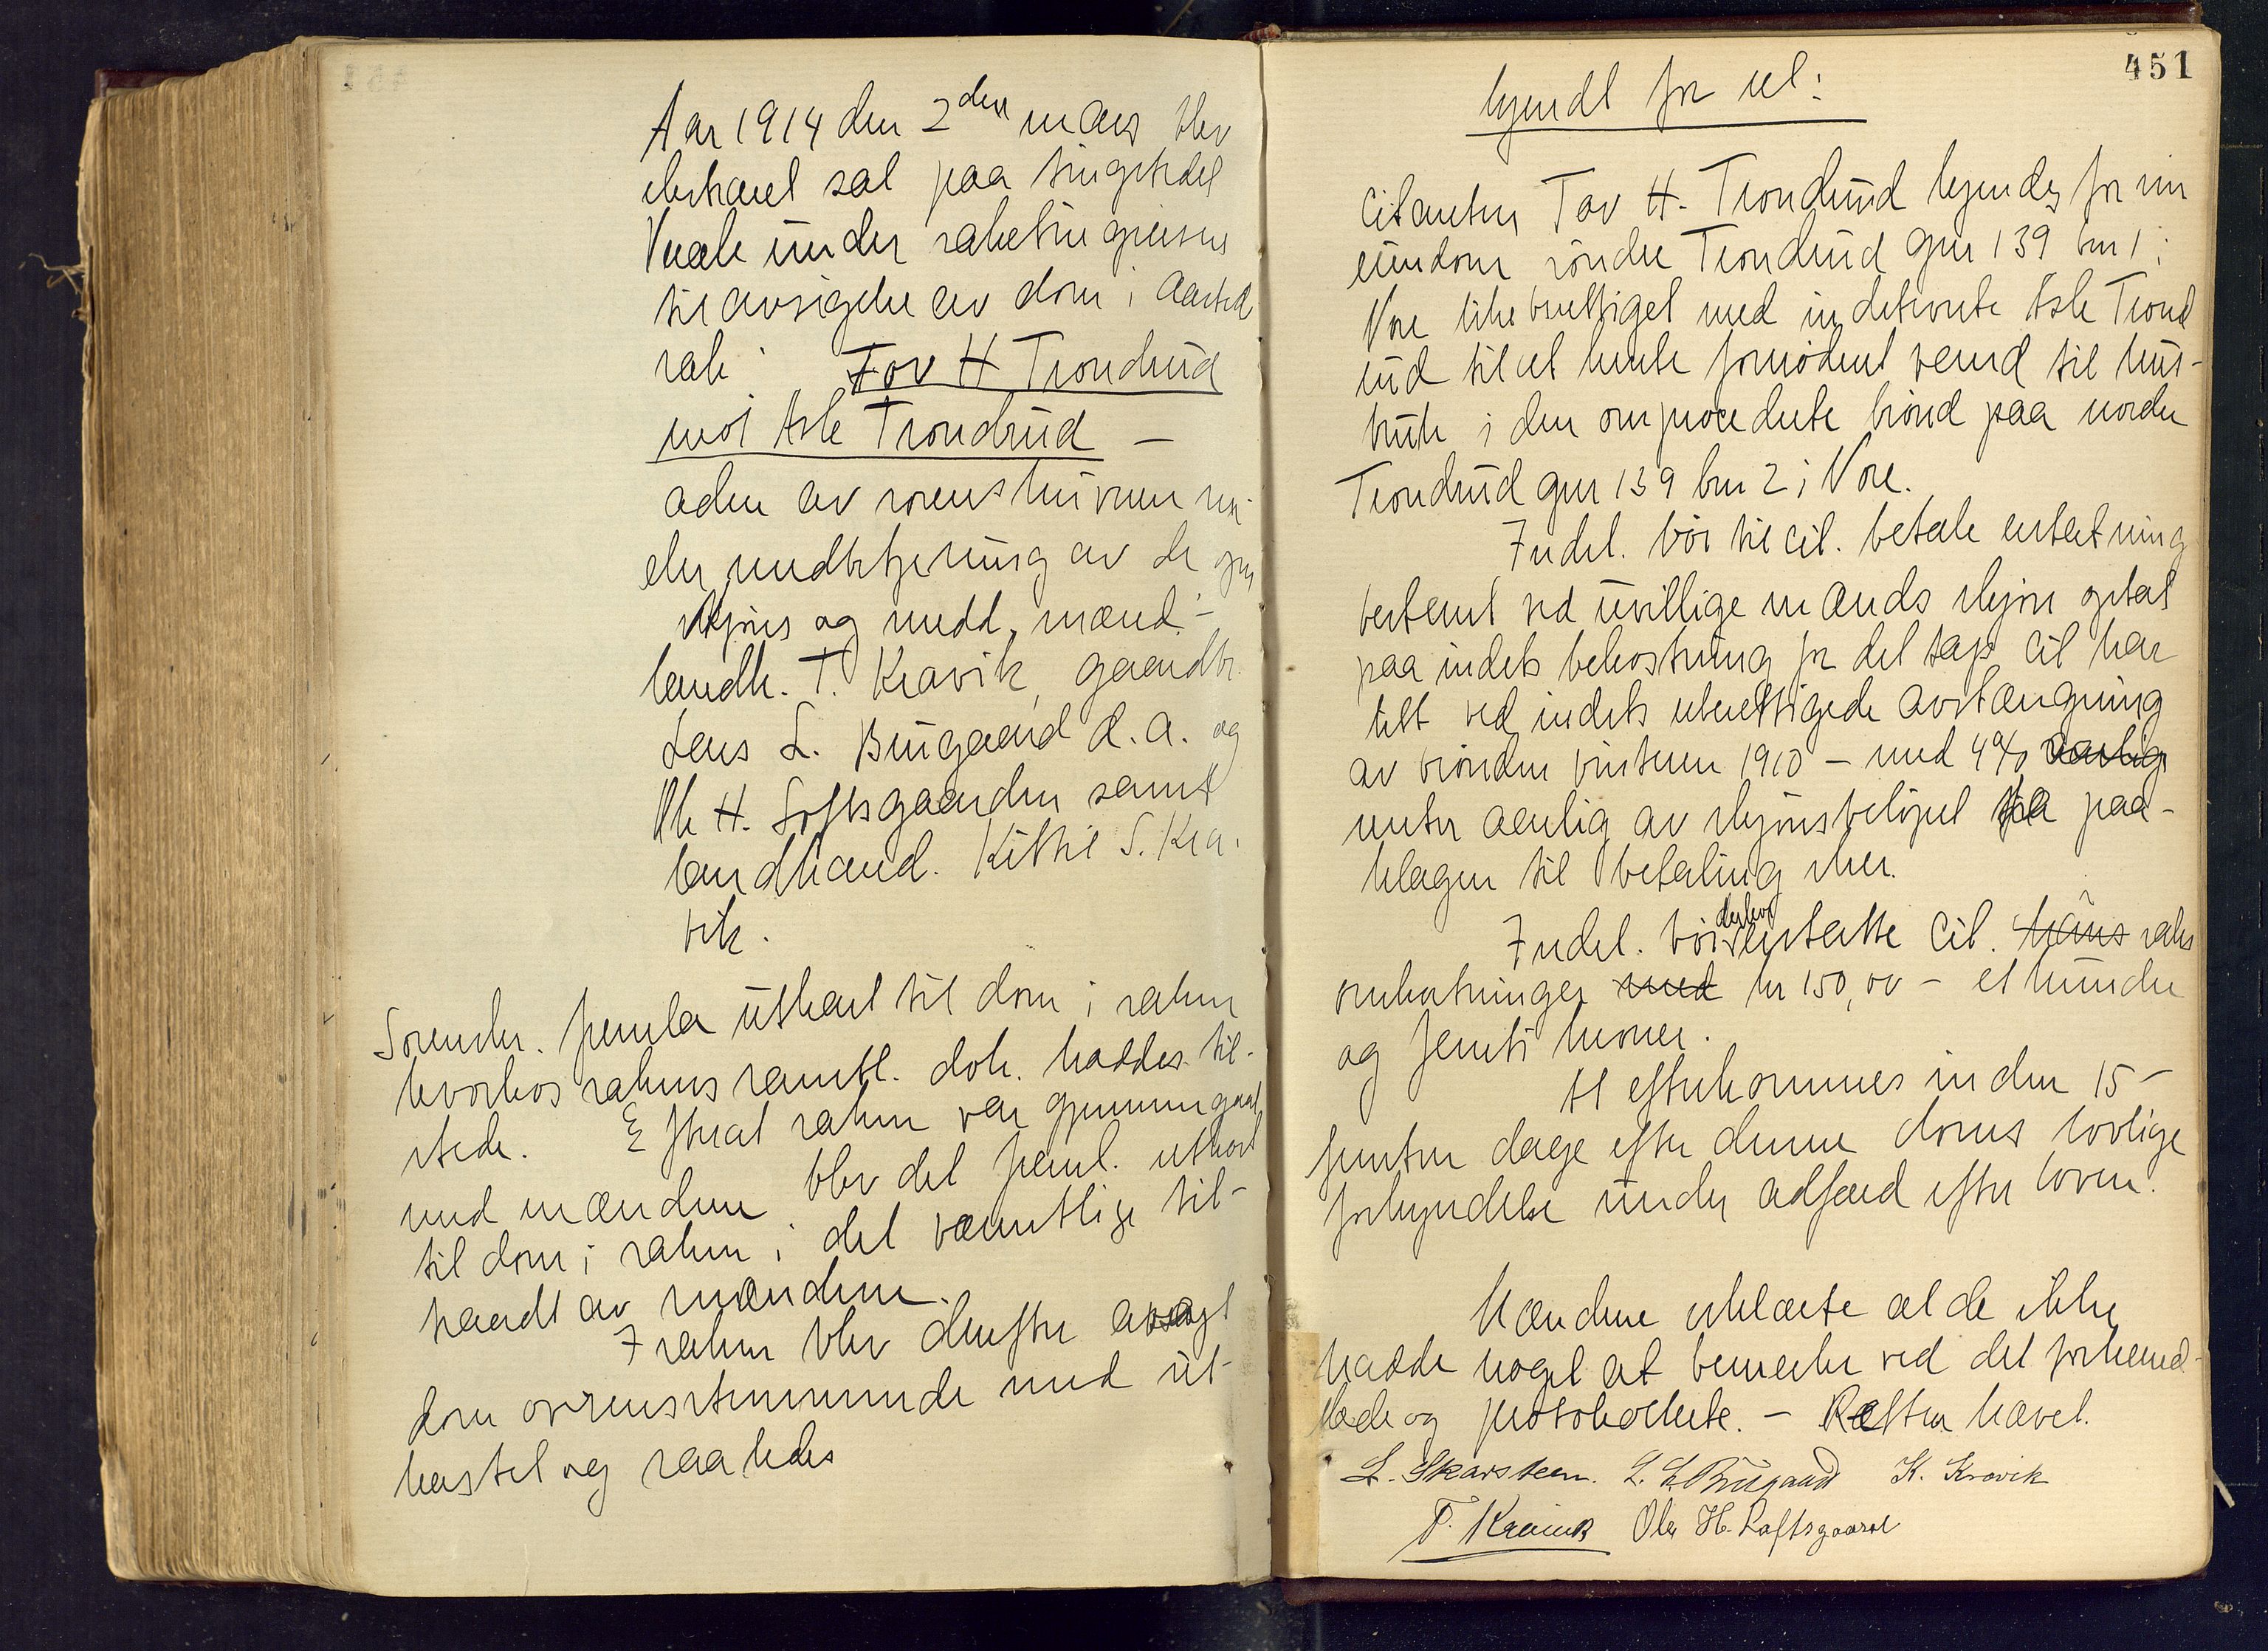 Aar 1914 den 2den mars blev
ekstraret sat paa tingstedet
Veale under saketingreisen
til avsigelse av dom i aasted
sak: Tov H Trondrud
mot Asle Trondrud —
aden av sorenskriveren
eller medbetjening av de op
skjøns og medd. mænd:
landh. T. Kravik, gaardbr.
Lars L. Bugaard d.a. og
Ole H. Loftsgaarden samt
landhand. Kittil S. Kra-
vik.
Sorenskr. fremla utkast til dom i saken
hvorhos sakens samtl. dok. haddes til-
stede. Efterat saken var gjennemgaat
med mændene blev det freml. utkast
til dom i saken i det væsentlige til-
traadt av mændene.
I saken blev derefter avsagt
dom overensstemmende med ut-
kastet og saaledes
451
kjendt for ret:
Citanten Tov H. Trondrud kjendes for sin
eiendom søndre Trondrud gnr 139 bnr 1 i
Nore likeberettiget med indstevnte Asle Trond
rud til at hente fornødent vand til hus-
bruk i den omprocederte brønd paa nordre
Trondrud gnr 139 bnr 2 i Nore.
Indst. bør til cit. betale erstatning
bestemt ved uvillige mænds skjøn optat
paa indsts bekostning for det tap cit har
lidt ved indsts uberettigede avstængning
av brønden vinteren 1910 — med 4% aarlig
renter aarlig av skjønsbeløpet fra paa-
klagen til betaling sker.
Indst. bør derhos erstatte Cit. hans saks
omkostninger med kr 150,00 — et hundre
og femti kroner.
At efterkommes inden 15 —
femten dage efter denne doms lovlige
forkyndelse under adfærd efter loven.
Mændene erklærte at de ikke
hadde noget at bemerke ved det forhand-
lede og protokollerte. — Retten hævet.
L. Skarsteen. L. L. Bugaard K. Kravik
T. Kravik Ole H. Loftsgaard